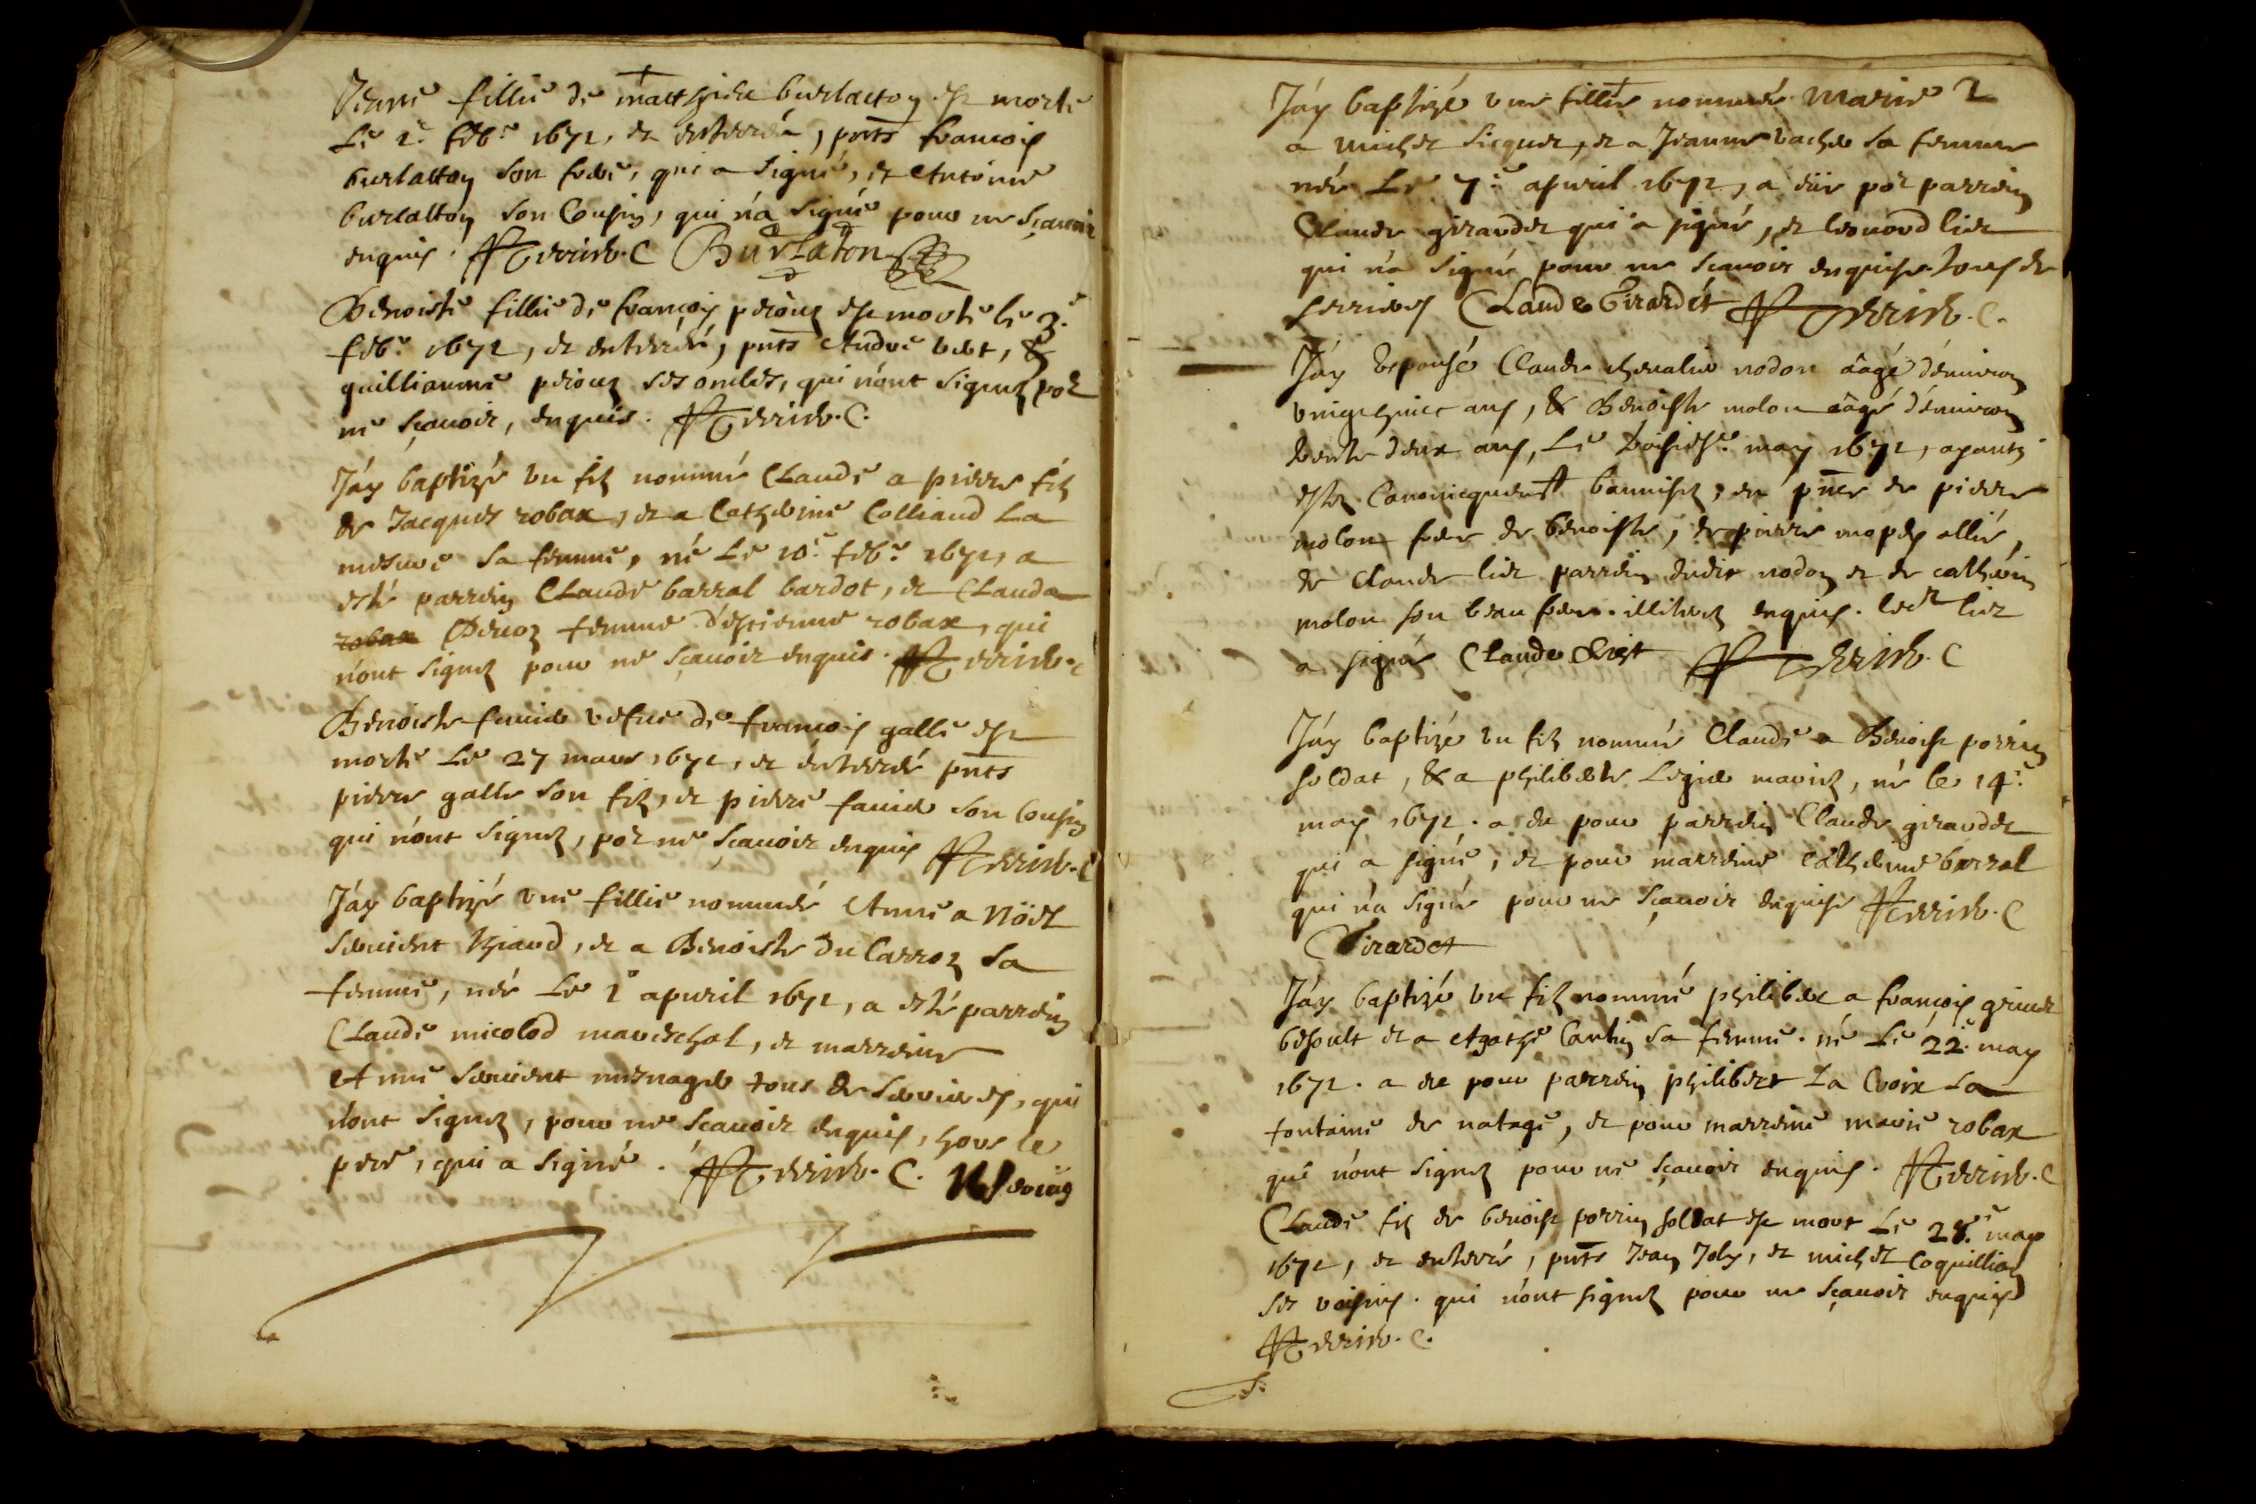 Jeanne fillie de matthieu burlatton est morte
Le 2.e feb.r 1672, et enterrée, pnts francois
burlatton son frere, qui a signé, et Antoine
burlatton son Cousin, qui n'a signé pour ne sçauoir
enquis. Perrier. C Burlaton
Benoiste fillie de francois perouz est morte le 3.e
feb.r 1672, et enterrée, pnts Andre &
guilliaume perouz ses oncles, qui n'ont signez por
ne sçauoir, enquis. Perrier. C.
J'ay baptizé vn filz nommé Claude a pierre filz
de Jacques robax, et a Catherine Colliaud La
mesme sa femme, né Le 10.e feb.r 1672, a
esté parrein Claude barral bardot, et Clauda
robax femme d'estienne robax, qui
n'ont signez pour ne sçauoir enquis. Perrier. C
Benoiste fauier vefue de francois galle est
morte Le 27 mars 1672, et enterrée pnts
pierre galle son filz, et pierre fauier son Cousin
qui n'ont signez, por ne sçauoir enquis Perrier. C
J'ay baptizé vne fillie nommée Anne a Nöel
et a Benoiste du Carroz sa
femme, née Le 1.e apuril 1672, a esté parrein
Claude micolod mareschal, et marreine
Anne mesnager tous de qui
n'ont signez, pour ne sçauoir enquis, hors le
pere, qui a signé. Perrier. C.
J'ay baptizé vne fillie nommée Marie 2
a Michel sicquet, et a Jeanne vacher sa femme
née Le 7.e apuril 1672, a eüe por parrein
Claude girardet qui a signé, et leonard liet
qui n'a signé pour ne sçauoir enquise tous de
Claude Girardet Perrier. C.
J'ay Espousé Claude cheualier nodon aagé d'enuiron
vingt huict ans, & Benoiste molon aagé d'enuiron
trente deux ans, Le may 1672, ayants
estez Canonicquemt bannisez, en pnce de pierre
molon frere de benoiste, de pierre allié,
de Claude liet parrein dudit nodon et de catherin
molon son beau frere. illiterez enquis. ledt liet
a signé Claude Liet Perrier. C
J'ay baptizé vn filz nommé Claude a Benoist perrin
soldat, & a philiberte mariez, né le 14.e
may 1672. a eu pour parrein Claude girardet
qui a signé, et pour marreine Catherine barral
qui n'a signé pour ne sçauoir enquise Perrier. C
Girardet
J'ay baptizé vn filz nommé philibert a françois
et a Agathe sa femme. né Le 22.e may
1672. a eu pour parrein philibert La Croix La
fontaine de natage, et pour marreine marie robax
qui n'ont signez pour ne sçauoir enquis. Perrier. C
Claude filz de benoist perrin soldat est mort Le 28.e may
1672, et enterré, pnts Jean Joly, et michel Coquillion
ses voisins. qui n'ont signez pour ne sçauoir enquis
Perrier. C.